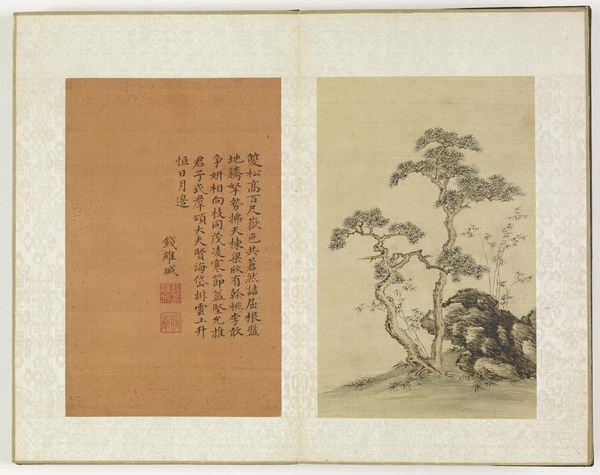 雙松高百尺歡色共蒼然詰屈根盤
地騰拏勢拂天棟梁欣有榦桃李敢
爭妍相向枝同茂凌寒節益堅允推
君子式羣頌大夫賢海岱排雲上升
恒日月邊
錢維城